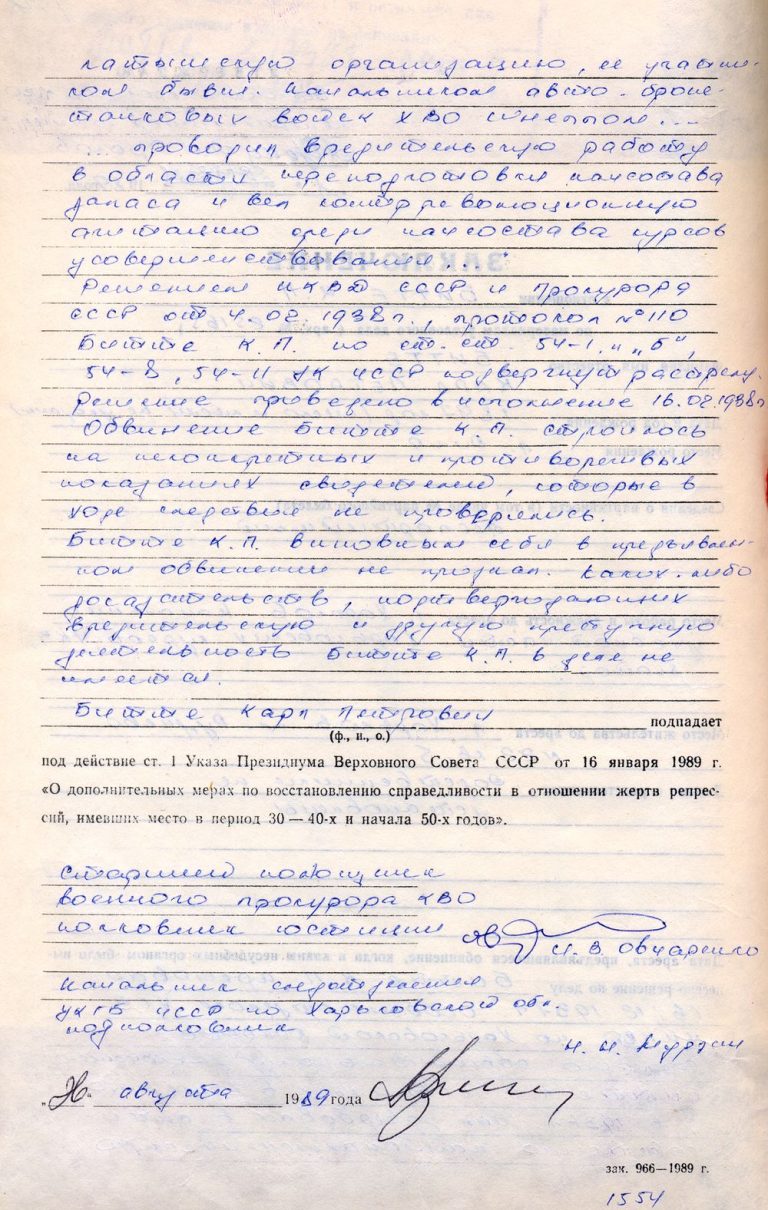 латышскую организацию, ее участни-
ком бывш. начальником авто-броне-
танковых войск ХВО Игнелом...
...проводил вредительскую работу
в области переподготовки начсостава
запаса и вел контрреволюционную
агитацию среди начсостава курсов
усовершенствования..."
Решением НКВД СССР и Прокурора
СССР от 4.02.1938г., протокол № 110
Битте К.П. по ст.ст. 54-1 "Б",
54-8, 54-11 УК УССР подвергнут расстрелу.
Решение приведено в исполнение 16.02.1938г.
Обвинение Битте К.П. строилось
на неконкретных и противоречивых
показаниях свидетелей, которые в
ходе следствия не проверялись.
Битте К.П. виновным себя в предъявлен-
ном обвинении не признал. Каких-либо
доказательств, подтверждающих
вредительскую и другую преступную
деятельность Битте К.П. в деле не
имеется.
Битте Карл Петрович подпадает
(ф., и., о.)
под действие ст. 1 Указа Президиума Верховного Совета СССР от 16 января 1989 г.
«О дополнительных мерах по восстановлению справедливости в отношении жертв репрес-
сий, имевших место в период 30—40-х и начала 50-х годов».
Старший помощник
военного прокурора КВО
полковник юстиции В. Овчаренко
Начальник следотделения
УКГБ УССР по Харьковской обл.
подполковник
Н. Н. Мурзин
августа 1989 года
зак. 966—1989 г.
1554